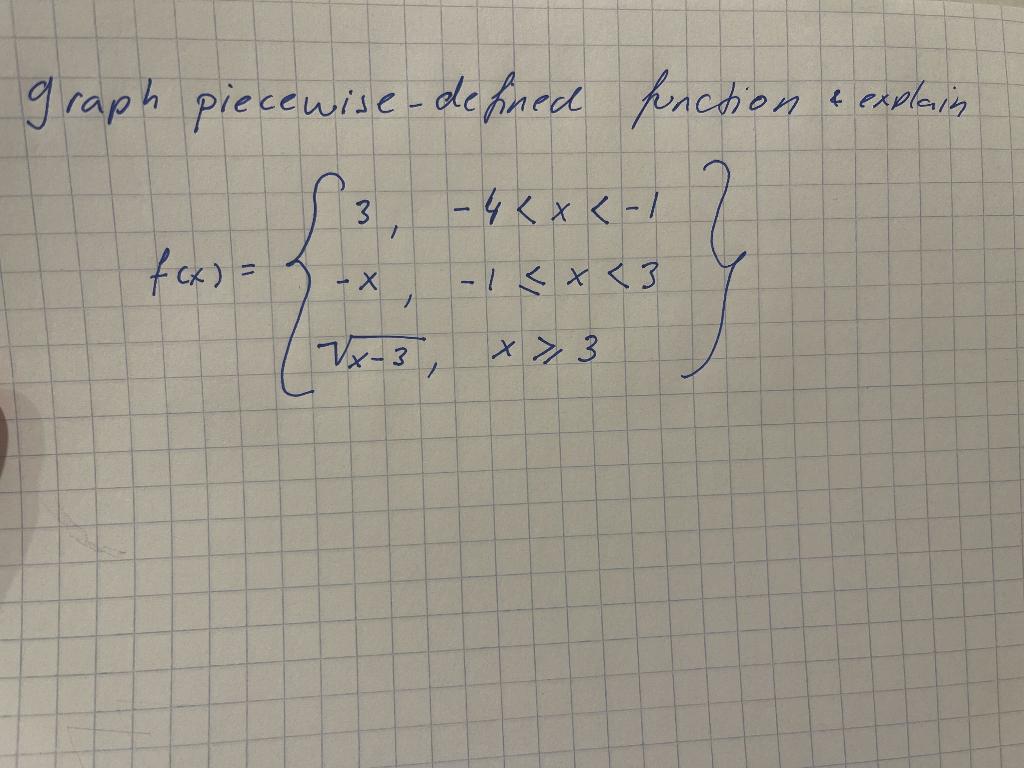 graph piecewise-defined function & explain
3, -4 < x < -1
f(x) = { -x, -1 ≤ x < 3 }
√x-3, x ⩾ 3